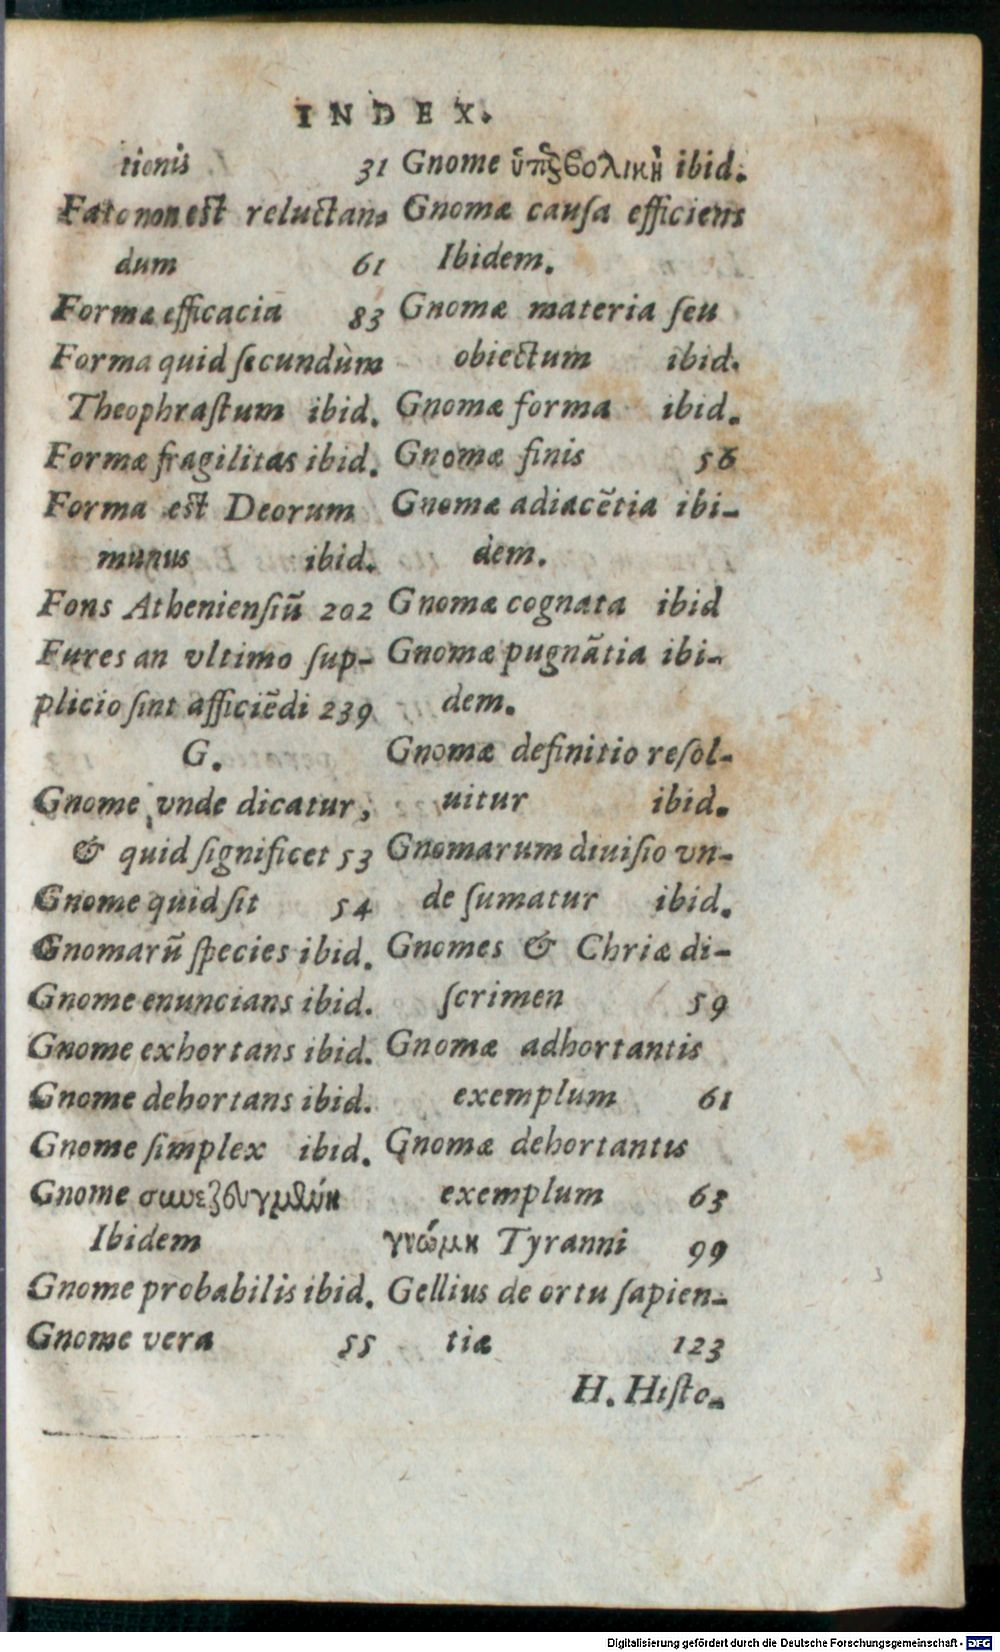 INDEX.
tionis 31
Fato non est reluctan-
dum 61
Formæ efficacia 83
Forma quid ſecundùm
Theophraſtum ibid.
Formæ fragilitas ibid.
Forma est Deorum
munus ibid.
Fons Athenienſiū 202
Fures an vltimo ſup-
plicio ſint afficiēdi 239
G.
Gnome vnde dicatur,
& quid ſignificet 53
Gnome quid ſit 54
Gnomarū ſpecies ibid.
Gnome enuncians ibid.
Gnome exhortans ibid.
Gnome dehortans ibid.
Gnome ſimplex ibid.
Gnome συνεζευγμένη
Ibidem
Gnome probabilis ibid.
Gnome vera 55
Gnome ὑπερβολικὴ ibid.
Gnomæ cauſa efficiens
Ibidem.
Gnomæ materia ſeu
obiectum ibid.
Gnomæ forma ibid.
Gnomæ finis 56
Gnomæ adiacētia ibi-
dem.
Gnomæ cognata ibid
Gnomæ pugnātia ibi-
dem.
Gnomæ definitio reſol-
uitur ibid.
Gnomarum diuiſio vn-
de ſumatur ibid.
Gnomes & Chriæ di-
ſcrimen 59
Gnomæ adhortantis
exemplum 61
Gnomæ dehortantis
exemplum 63
γνώμη Tyranni 99
Gellius de ortu ſapien-
tiæ 123
H. Hiſto-
Digitalisierung gefördert durch die Deutsche Forschungsgemeinschaft - DFG